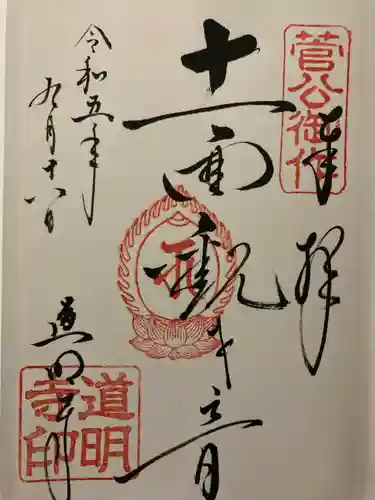 菅公御作
奉拝
十一面観世音
令和五年
九月十八日
道明寺
道明寺印